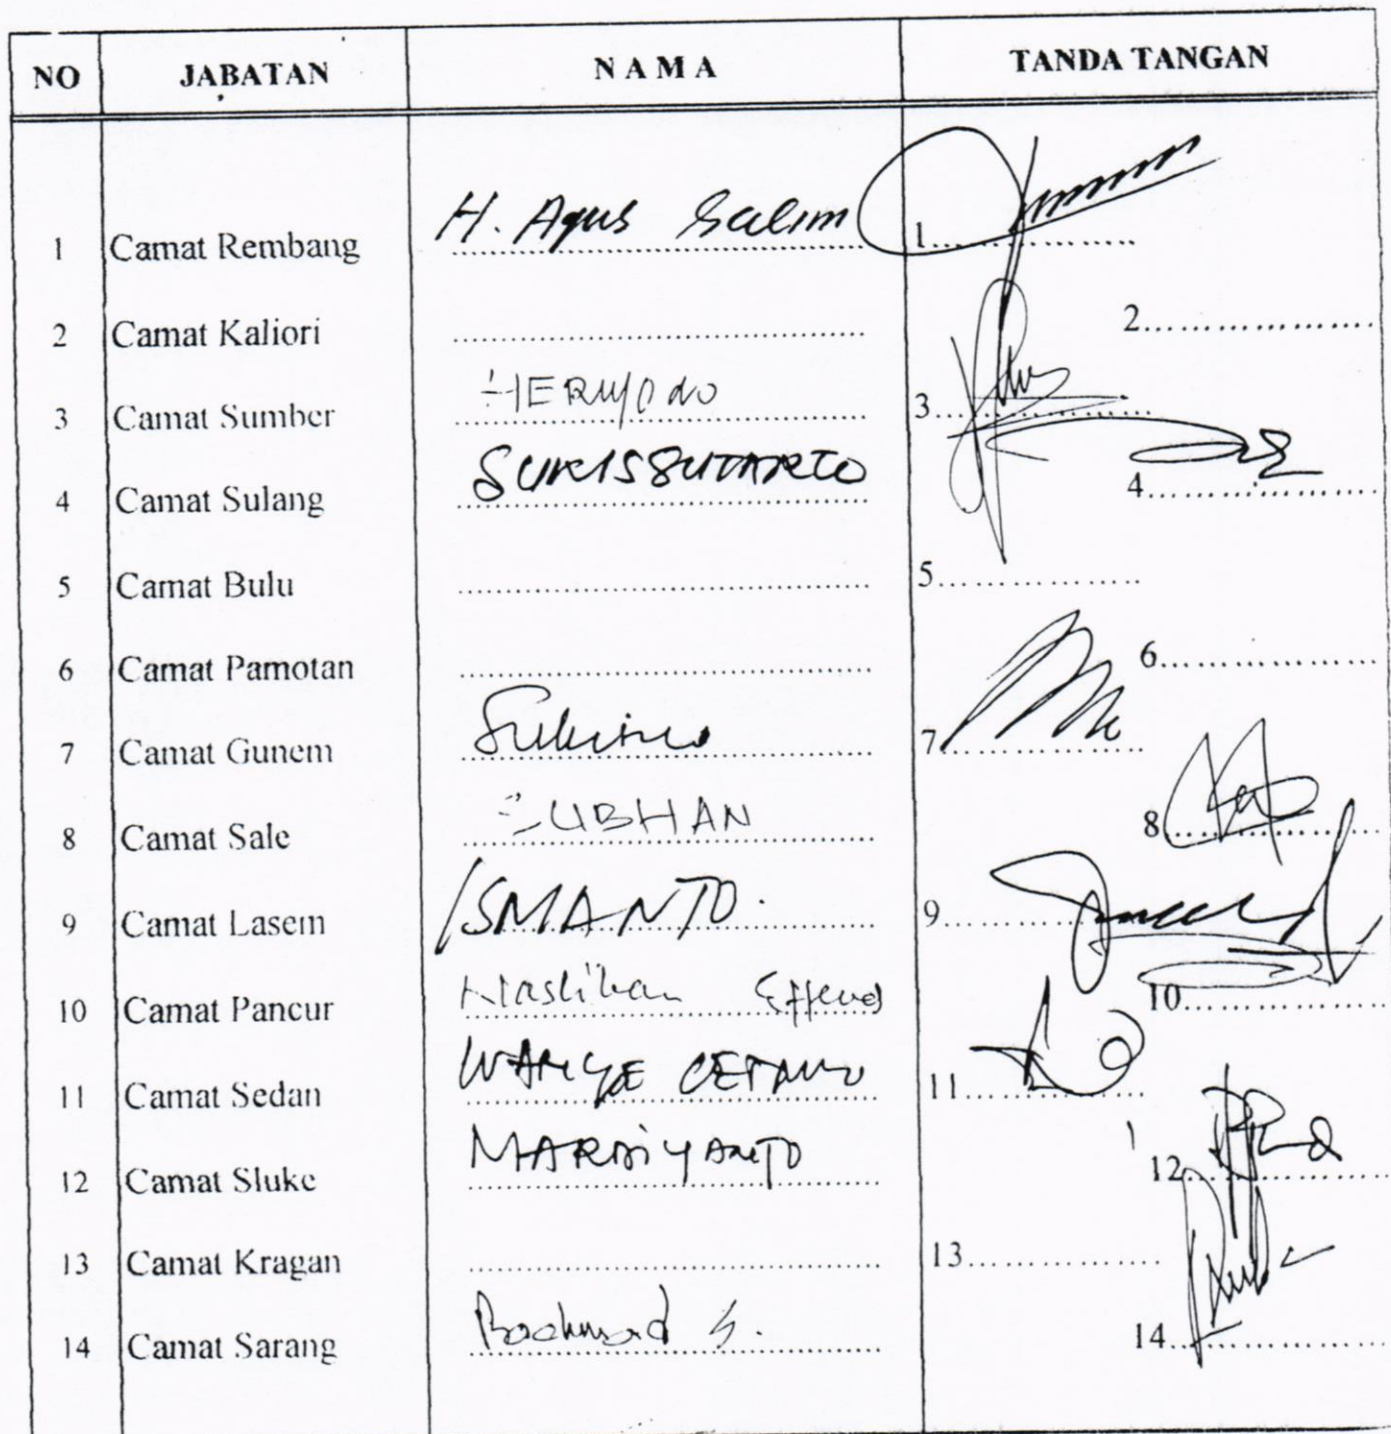 NO JABATAN N A M A TANDA TANGAN
1 Camat Rembang H. Agus Salim 1
2 Camat Kaliori 2
3 Camat Sumber HERIYONO 3
4 Camat Sulang SUKISSUTARTO 4
5 Camat Bulu 5
6 Camat Pamotan 6
7 Camat Gunem Sukirno 7
8 Camat Sale SUBHAN 8
9 Camat Lasem ISMANTO. 9
10 Camat Pancur Effend 10
11 Camat Sedan 11
12 Camat Sluke MARDIYANTO 12
13 Camat Kragan 13
14 Camat Sarang S. 14